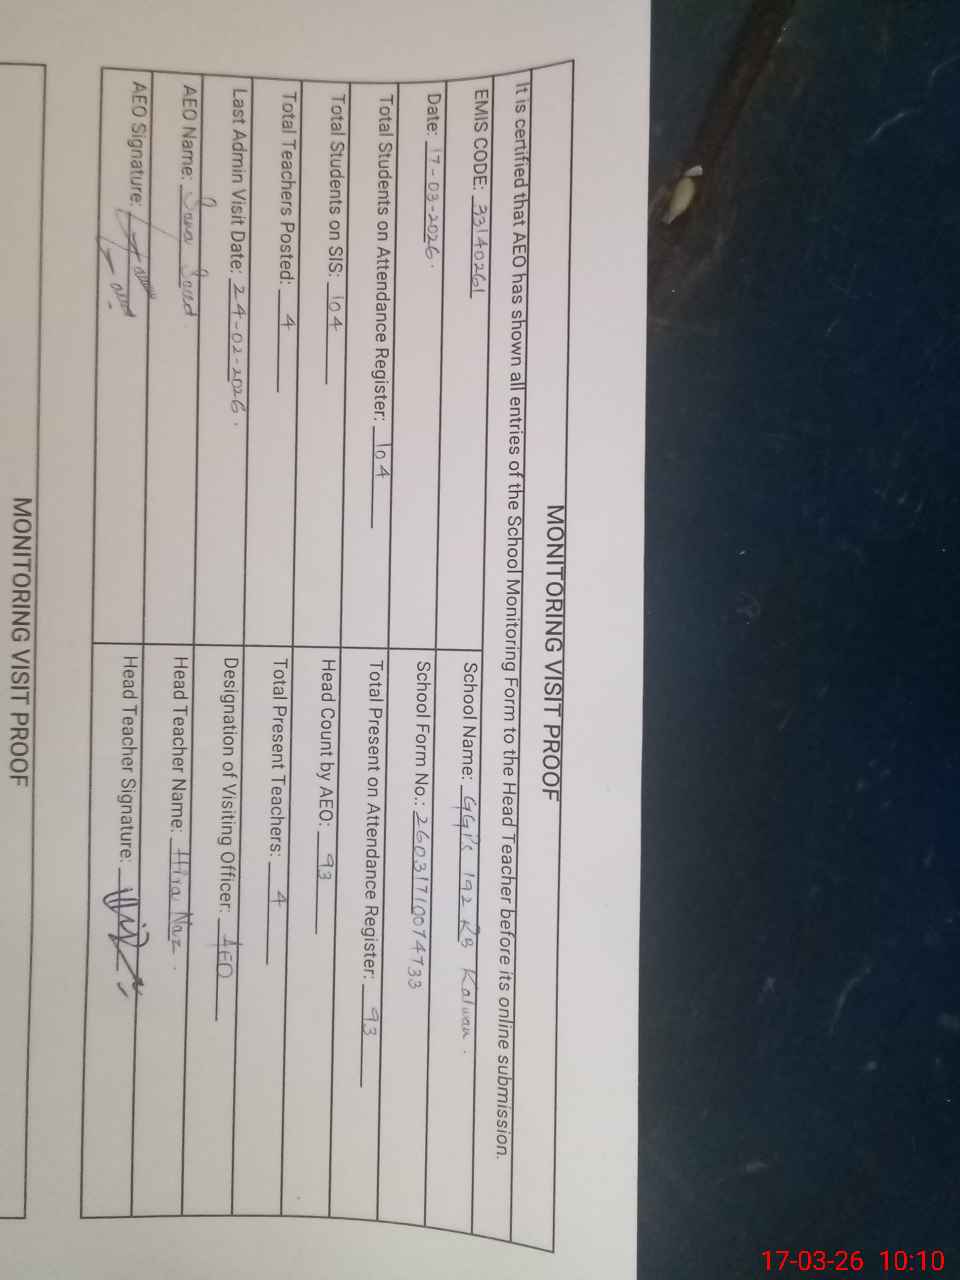 MONITORING VISIT PROOF
It is certified that AEO has shown all entries of the School Monitoring Form to the Head Teacher before its online submission.
EMIS CODE: 33140261 School Name: GGPS 192 RB Kalwan.
Date: 17-03-2026. School Form No.: 26031710074733
Total Students on Attendance Register: 104 Total Present on Attendance Register: 93
Total Students on SIS: 104 Head Count by AEO: 93
Total Teachers Posted: 4 Total Present Teachers: 4
Last Admin Visit Date: 24-02-2026. Designation of Visiting Officer: AEO
AEO Name: Sana Saeed. Head Teacher Name: Hira Naz.
AEO Signature: Head Teacher Signature:
MONITORING VISIT PROOF
17-03-26 10:10